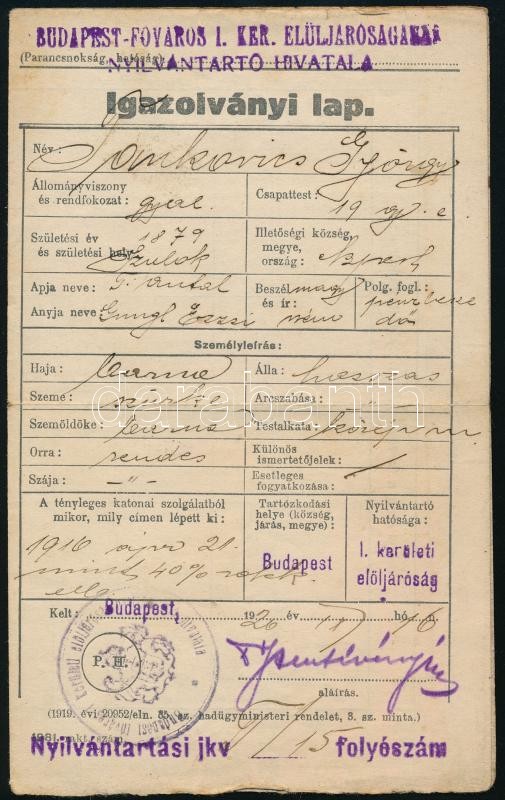 BUDAPEST-FŐVÁROS I. KER. ELÜLJÁRÓSÁGÁNAK
(Parancsnokság, hatóság)
NYILVÁNTARTÓ HIVATALA
Igazolványi lap.
Név: Jankovics György
Állományviszony és rendfokozat: gyal.
Csapattest: 19 gy. e
Születési év és születési hely: 1879 Szulok
Illetőségi község, megye, ország: Bpest
Apja neve: Antal
Anyja neve: Gungl Erzsi
Beszél és ír: magy ném
Polg. fogl.: pénzbesze dő
Személyleírás:
Haja: barna
Álla: hosszas
Szeme: szürke
Arcszabása: "
Szemöldöke: barna
Testalkata: közép m.
Orra: rendes
Különös ismertetőjelek:
Szája: -"-
Esetleges fogyatkozása:
A tényleges katonai szolgálatból mikor, mily címen lépett ki:
1916 ápr 21. mint 40% rokk.
Tartózkodási helye (község, járás, megye):
Budapest
Nyilvántartó hatósága:
I. kerületi elöljáróság
Kelt: Budapest, 1920 év VI hó 16 n.
P. H.
aláírás.
(1919. évi 20952/eln. 35. sz. hadügyministeri rendelet, 3. sz. minta.)
Nyilvántartási jkv 15 folyószám
darabanth